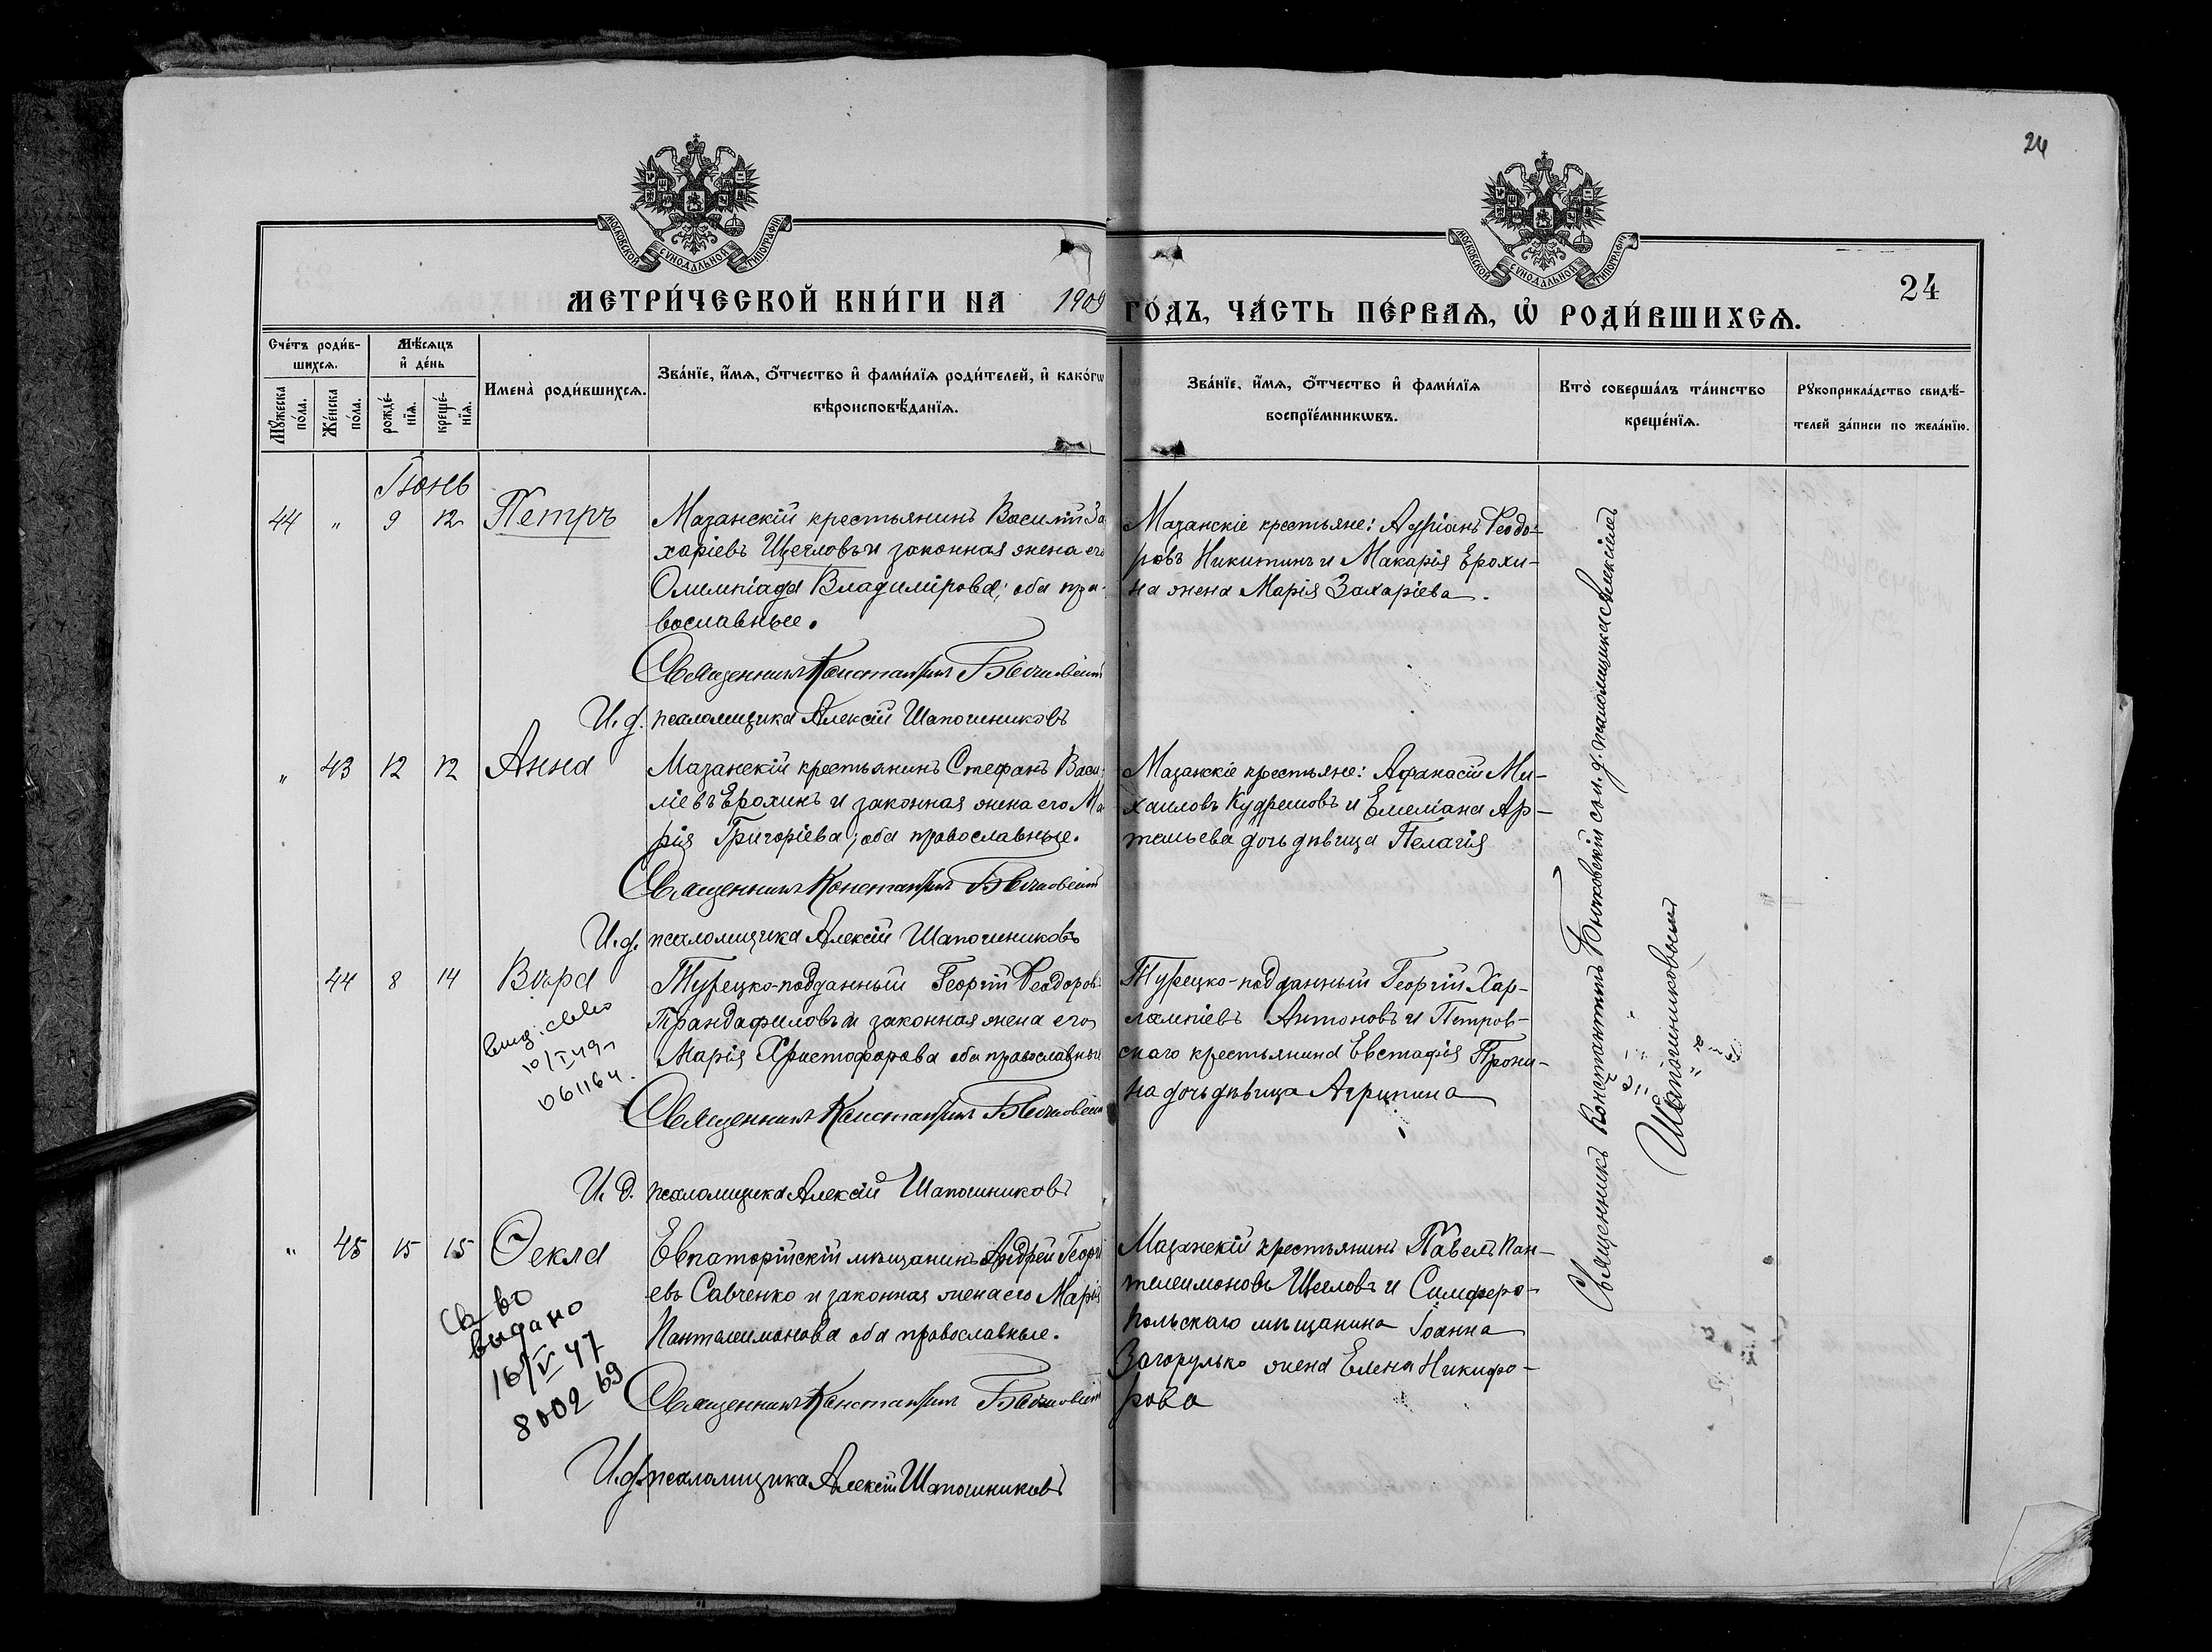 24
МОСКОВСКОЙ СѴНОДАЛЬНОЙ ТИПОГРАФІИ
МОСКОВСКОЙ СѴНОДАЛЬНОЙ ТИПОГРАФІИ
24
МЕТРИ́ЧЕСКОЙ КНИ́ГИ НА 1909
ГО́ДЪ, ЧА́СТЬ ПЕ́РВАѦ, Ѡ҆ РОДИ́ВШИХСѦ.
Сче́тъ роди́в-
шихсѧ.
Мꙋ́жеска по́ла.
Же́нска по́ла.
Мѣ́сѧцъ
и҆ де́нь
рожде́-
нїѧ.
креще́-
нїѧ.
Имена̀ роди́вшихсѧ.
Зва́нїе, и҆́мѧ, ѻ҆́тчество и҆ фами́лїѧ роди́телей, и҆ како́гѡ
вѣроисповѣ́данїѧ.
Зва́нїе, и҆́мѧ, ѻ҆́тчество и҆ фами́лїѧ
воспрїе́мникѡвъ.
Кто̀ соверша́лъ та́инство
креще́нїѧ.
Рꙋкоприкла́дство свидѣ́-
телей за́писи по жела́нїю.
Іюнь
44 " 9 12 Петръ
Мазанскій крестьянинъ Василій За
харіевъ Щегловъ и законная жена его
Олимпіада Владимірова; оба пра-
вославные.
Священникъ Константинъ
И. д. псаломщика Алексій Шапошниковъ
Мазанскіе крестьяне: Адріанъ Ѳеодо-
ровъ Никитинъ и Макарія Ерохи-
на жена Марія Захаріева.
" 43 12 12 Анна
Мазанскій крестьянинъ Стефанъ Васи
ліевъ Ерохинъ и законная жена его Ма
рія Григоріева; оба православные.
Священникъ Константинъ
И. д. псаломщика Алексій Шапошниковъ
Мазанскіе крестьяне: Аѳанасій Ми-
хаиловъ Кудряшовъ и Емеліана Ар-
темьева дочь дѣвица Пелагія
44 8 14 Вѣра
10/I 49г
061164.
Турецко-подданный Георгій Ѳеодоров
Трандафиловъ и законная жена его
Марія Христофорова оба православные
Священникъ Константинъ
И. д. псаломщика Алексій Шапошниковъ
Турецко-подданный Георгій Хар-
лампіевъ Антоновъ и Петров-
скаго крестьянина Евстафія Прони-
на дочь дѣвица Агрипина
" 45 15 15 Ѳекла
Св-во
выдано
16/V 47
800269
Евпаторійскій мѣщанинъ Андрей Георгі
евъ Савченко и законная жена его Марія
Пантелеимонова оба православные.
Священникъ Константинъ
И. д. псаломщика Алексій Шапошниковъ
Мазанскій крестьянинъ Павелъ Пан-
телеимоновъ Щегловъ и Симферо-
польскаго мѣщанина Іоанна
Загорулько жена Елена Никифо-
рова
Священникъ Константинъ с и. д. псаломщика Алексіемъ
Шапошниковымъ